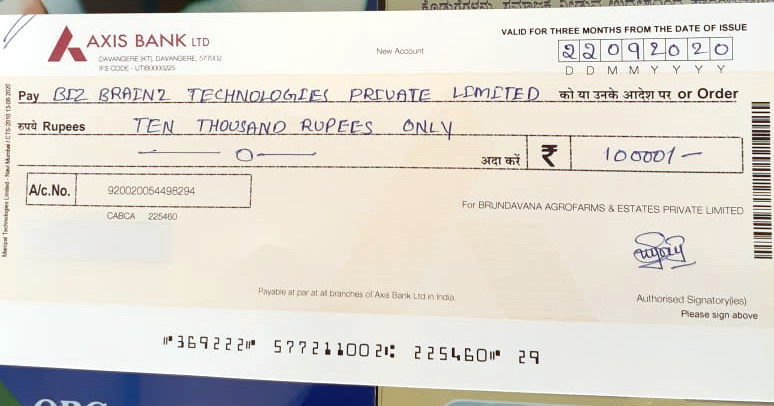 AXIS BANK LTD
DAVANGERE [KT], DAVANGERE, 577002
IFS CODE - UTIB0000225
New Account
VALID FOR THREE MONTHS FROM THE DATE OF ISSUE
22092020
D D M M Y Y Y Y
Pay BIZ BRAINZ TECHNOLOGIES PRIVATE LIMITED को या उनके आदेश पर or Order
रुपये Rupees TEN THOUSAND RUPEES ONLY
अदा करें ₹ 10000/-
A/c.No. 920020054498294
CABCA 225460
For BRUNDAVANA AGROFARMS & ESTATES PRIVATE LIMITED
Payable at par at all branches of Axis Bank Ltd in India.
Authorised Signatory(ies)
Please sign above
Manipal Technologies Limited - Navi Mumbai / CTS-2010
⑈369222⑈ 577211002⑆ 225460⑈ 29